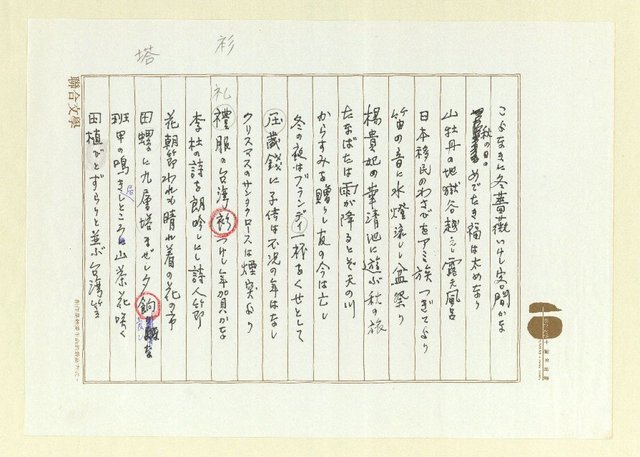 衫
塔
こよなきに冬薔薇いけし客間かな
秋の日のめでたき福は太めなり
山牡丹の地獄谷越えし露天風呂
日本移民のわさびをアミ族つぎてより
笛の音に水燈流しし盆祭り
楊貴妃の華清池に遊ぶ秋の旅
たなばたは雨が降るとぞ天の川
からすみを贈りし友の今は亡し
冬の夜はブランディ一杯をくせとして
圧歳銭に子供は不況の年はなし
クリスマスのサンタクロースは煙突より
礼
禮服の台湾衫つけし年賀かな
李杜の詩を朗吟しにし詩人節
花朝節われも晴れ着の花の市
田螺に九層塔まぜし夕餉
班甲の鳴きしところ山茶花咲く
居
田植びとずらりと並ぶ台湾笠
聯合文學